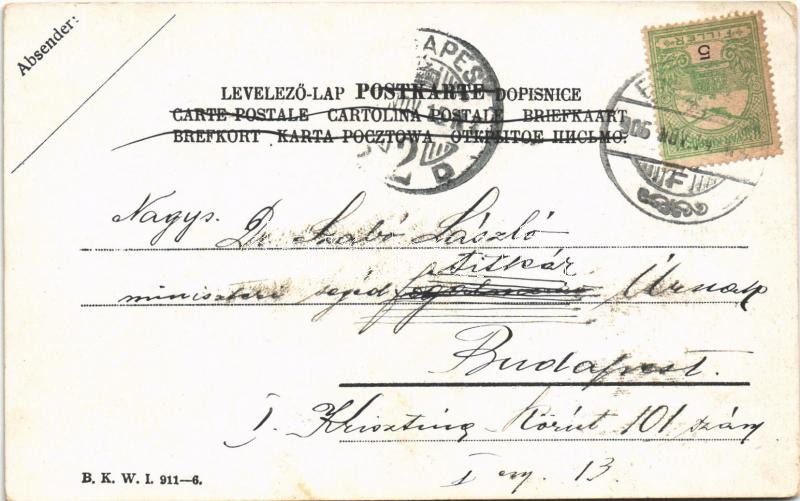 Absender:
5
FILLÉR
LEVELEZŐ-LAP POSTKARTE DOPISNICE
CARTE POSTALE CARTOLINA POSTALE BRIEFKAART
BREFKORT KARTA POCZTOWA ОТКРЫТОЕ ПИСЬМО.
Nagys. Dr Szabó László
titkár
miniszteri segéd Úrnak
Budapest.
I. Krisztina Körút 101 szám
I em. 13.
B. K. W. I. 911—6.